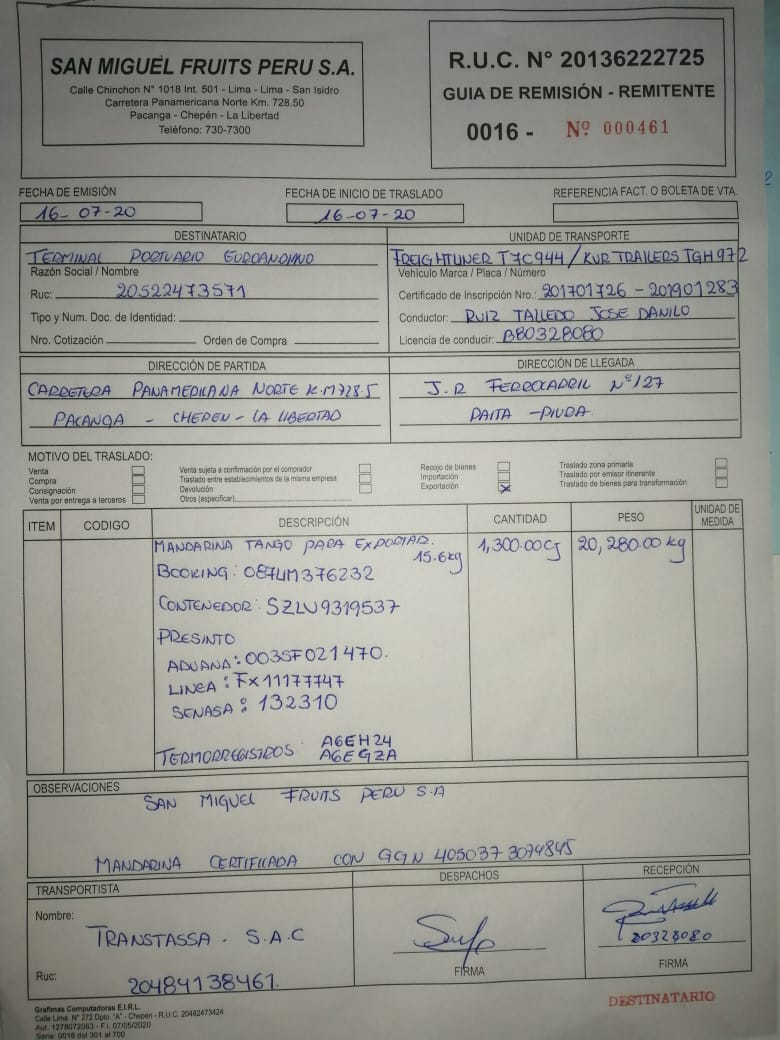 SAN MIGUEL FRUITS PERU S.A.
Calle Chinchon N° 1018 Int. 501 - Lima - Lima - San Isidro
Carretera Panamericana Norte Km. 728.50
Pacanga - Chepén - La Libertad
Teléfono: 730-7300
R.U.C. N° 20136222725
GUIA DE REMISIÓN - REMITENTE
0016 - Nº 000461
FECHA DE EMISIÓN
16-07-20
FECHA DE INICIO DE TRASLADO
16-07-20
REFERENCIA FACT. O BOLETA DE VTA.
DESTINATARIO
TERMINAL PORTUARIO EUROANDINO
Razón Social / Nombre
Ruc: 20522473571
Tipo y Num. Doc. de Identidad:
Nro. Cotización Orden de Compra
UNIDAD DE TRANSPORTE
FREIGHTLINER T7C944 / KUR TRAILERS TGH972
Vehículo Marca / Placa / Número
Certificado de Inscripción Nro.: 201701726 - 201901283
Conductor: RUIZ TALLEDO JOSE DANILO
Licencia de conducir: B80328080
DIRECCIÓN DE PARTIDA
CARRETERA PANAMERICANA NORTE K.M 728.5
PACANGA - CHEPEN - LA LIBERTAD
DIRECCIÓN DE LLEGADA
J.R FERROCARRIL Nº 127
PAITA - PIURA
MOTIVO DEL TRASLADO:
Venta
Compra
Consignación
Venta por entrega a terceros
Venta sujeta a confirmación por el comprador
Traslado entre establecimientos de la misma empresa
Devolución
Otros (especificar)
Recojo de bienes
Importación
Exportación X
Traslado zona primaria
Traslado por emisor itinerante
Traslado de bienes para transformación
ITEM CODIGO DESCRIPCIÓN CANTIDAD PESO UNIDAD DE MEDIDA
MANDARINA TANGO PARA EXPORTAR. 1,300.00 CJ 20,280.00 kg
15.6kg
BOOKING: 087LIM376232
CONTENEDOR: SZLU9319537
PRESINTO
ADUANA: 003SF021470.
LINEA: FX11177747
SENASA: 132310
TERMORREGISTROS A6EH24
A6EGZA
OBSERVACIONES
SAN MIGUEL FRUITS PERU S.A
MANDARINA CERTIFICADA CON GGN 4050373074845
TRANSPORTISTA
Nombre:
TRANSTASSA. S.A.C
Ruc: 20484138461.
DESPACHOS
FIRMA
RECEPCIÓN
80328080
FIRMA
Grafimas Computadoras E.I.R.L.
Calle Lima N° 272 Dpto. "A" - Chepén - R.U.C. 20482473424
Aut. 1278072063 - F.I. 07/05/2020
Serie: 0016 del 301 al 700
DESTINATARIO